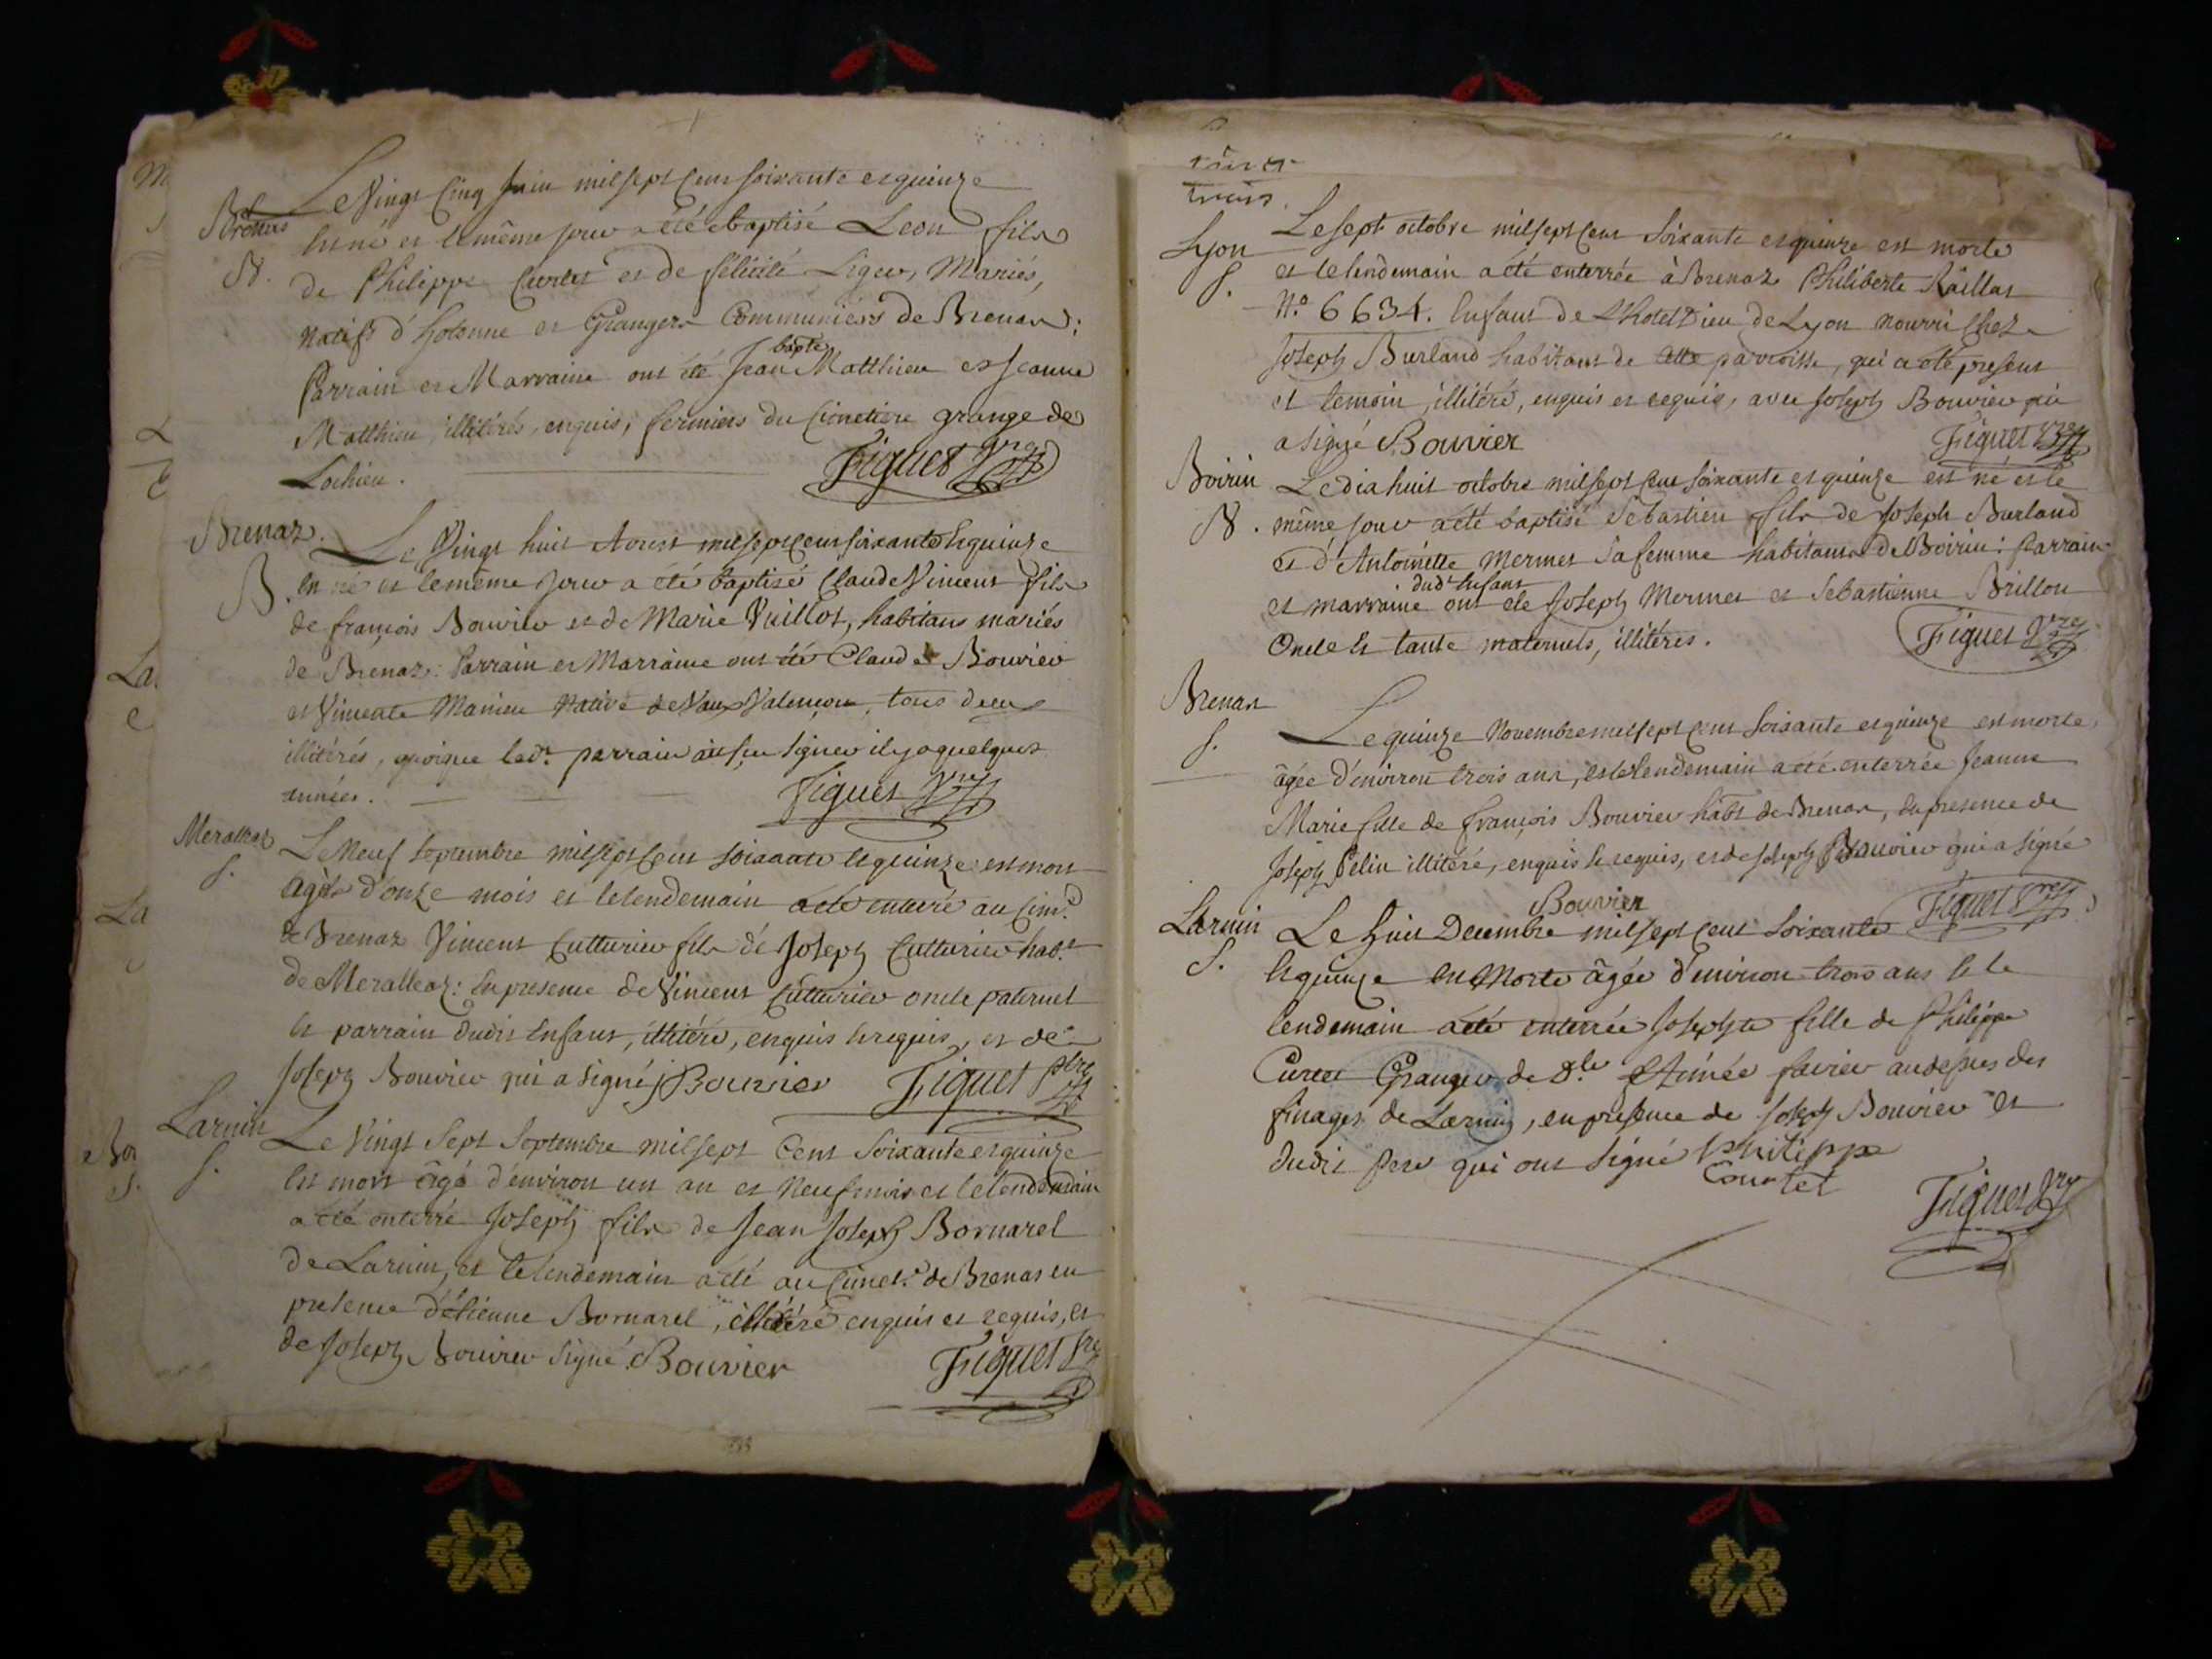 Brenas
B.
Le Vingt Cinq Juin mil sept Cent soixante et quinze
Est né et le même jour a été baptisé Leon fils
de Philippe Curtet et de félicité Liger, Mariés,
natifs d'hotonne et Grangers Communiers de Brenas;
bapte
Parrain et Marraine ont été Jean Matthieu et Jeanne
Matthieu, illitérés, enquis, fermiers du Cimetiere grange de
Lochieu.
Figuet Ptre
Brenaz.
B.
Le Vingt huit Aoust mil sept cent soixante et quinze
est né et le même jour a été baptisé Claude Vincent fils
de françois Bouvier et de Marie Vuillot, habitans mariés
de Brenaz: Parrain et Marraine ont été Claude Bouvier
et Vincente Manieu Native de Vaux Valençon, tous deux
illitérés, quoique led. parrain ait sçu signer il y a quelques
années.
Figuet Ptre
Meralleaz
S.
Le Neuf Septembre mil sept Cent soixante et quinze est mort
agé d'onze mois et le lendemain a été enterré au Cimre
de Brenaz Vincent Cutturier fils de Joseph Cutturier habt
de Meralleaz: En presence de Vincent Cutturier oncle paternel
et parrain dudit Enfant, illitéré, enquis et requis, et de
Joseph Bouvier qui a signé J Bouvier Figuet ptre
Larnin
S.
Le Vingt Sept Septembre mil sept Cent soixante et quinze
Est mort âgé d'environ un an et Neuf mois et le lendemdain
a été enterré Joseph fils de Jean Joseph Bornarel
de Larnin, et le lendemain a été au Cimet.e de Brenas en
presence d'étienne Bornarel, illitéré enquis et requis, et
de Joseph Bouvier Signé Bouvier Figuet ptre
trois
Lyon
S.
Le sept octobre mil sept Cent Soixante et quinze est morte
et le lendemain a été enterrée à Brenaz Philiberte Raillat
N.o 6634. Enfant de L'hotel Dieu de Lyon nourri Chez
Joseph Burland habitant de Cette parroisse, qui a été present
et temoin, illitéré, enquis et requis, avec Joseph Bouvier qui
a signé Bouvier Figuet Ptre
Boirin
B.
Le dix huit octobre mil sept Cent soixante et quinze est né et le
même jour a été baptisé Sebastien fils de Joseph Burland
et d'Antoinette Mermet Sa femme habitans de Boirin: Parrain
dudt Enfant
et marraine ont été Joseph Mermet et Sebastienne Brillon
Oncle et tante maternels, illitérés. Figuet Ptre
Brenas
S.
Le quinze Novembre mil sept cent Soixante et quinze est morte,
âgée d'environ trois ans, et le lendemain a été enterrée Jeanne
Marie fille de françois Bouvier habt de Brenas, En presence de
Joseph Pelin illitéré, enquis et requis, et de Joseph Bouvier qui a signé
Bouvier Figuet Ptre
Larnin
S.
Le huit Decembre mil sept cent Soixante
et quinze est Morte âgée d'environ trois ans et le
lendemain a été enterrée Josephte fille de Philippe
Curtet Granger de Dlle Aimée favier audessus des
finages de Larnin, en presence de Joseph Bouvier et
dudit Pere qui ont signé Philippe
Courtet Figuet Ptre